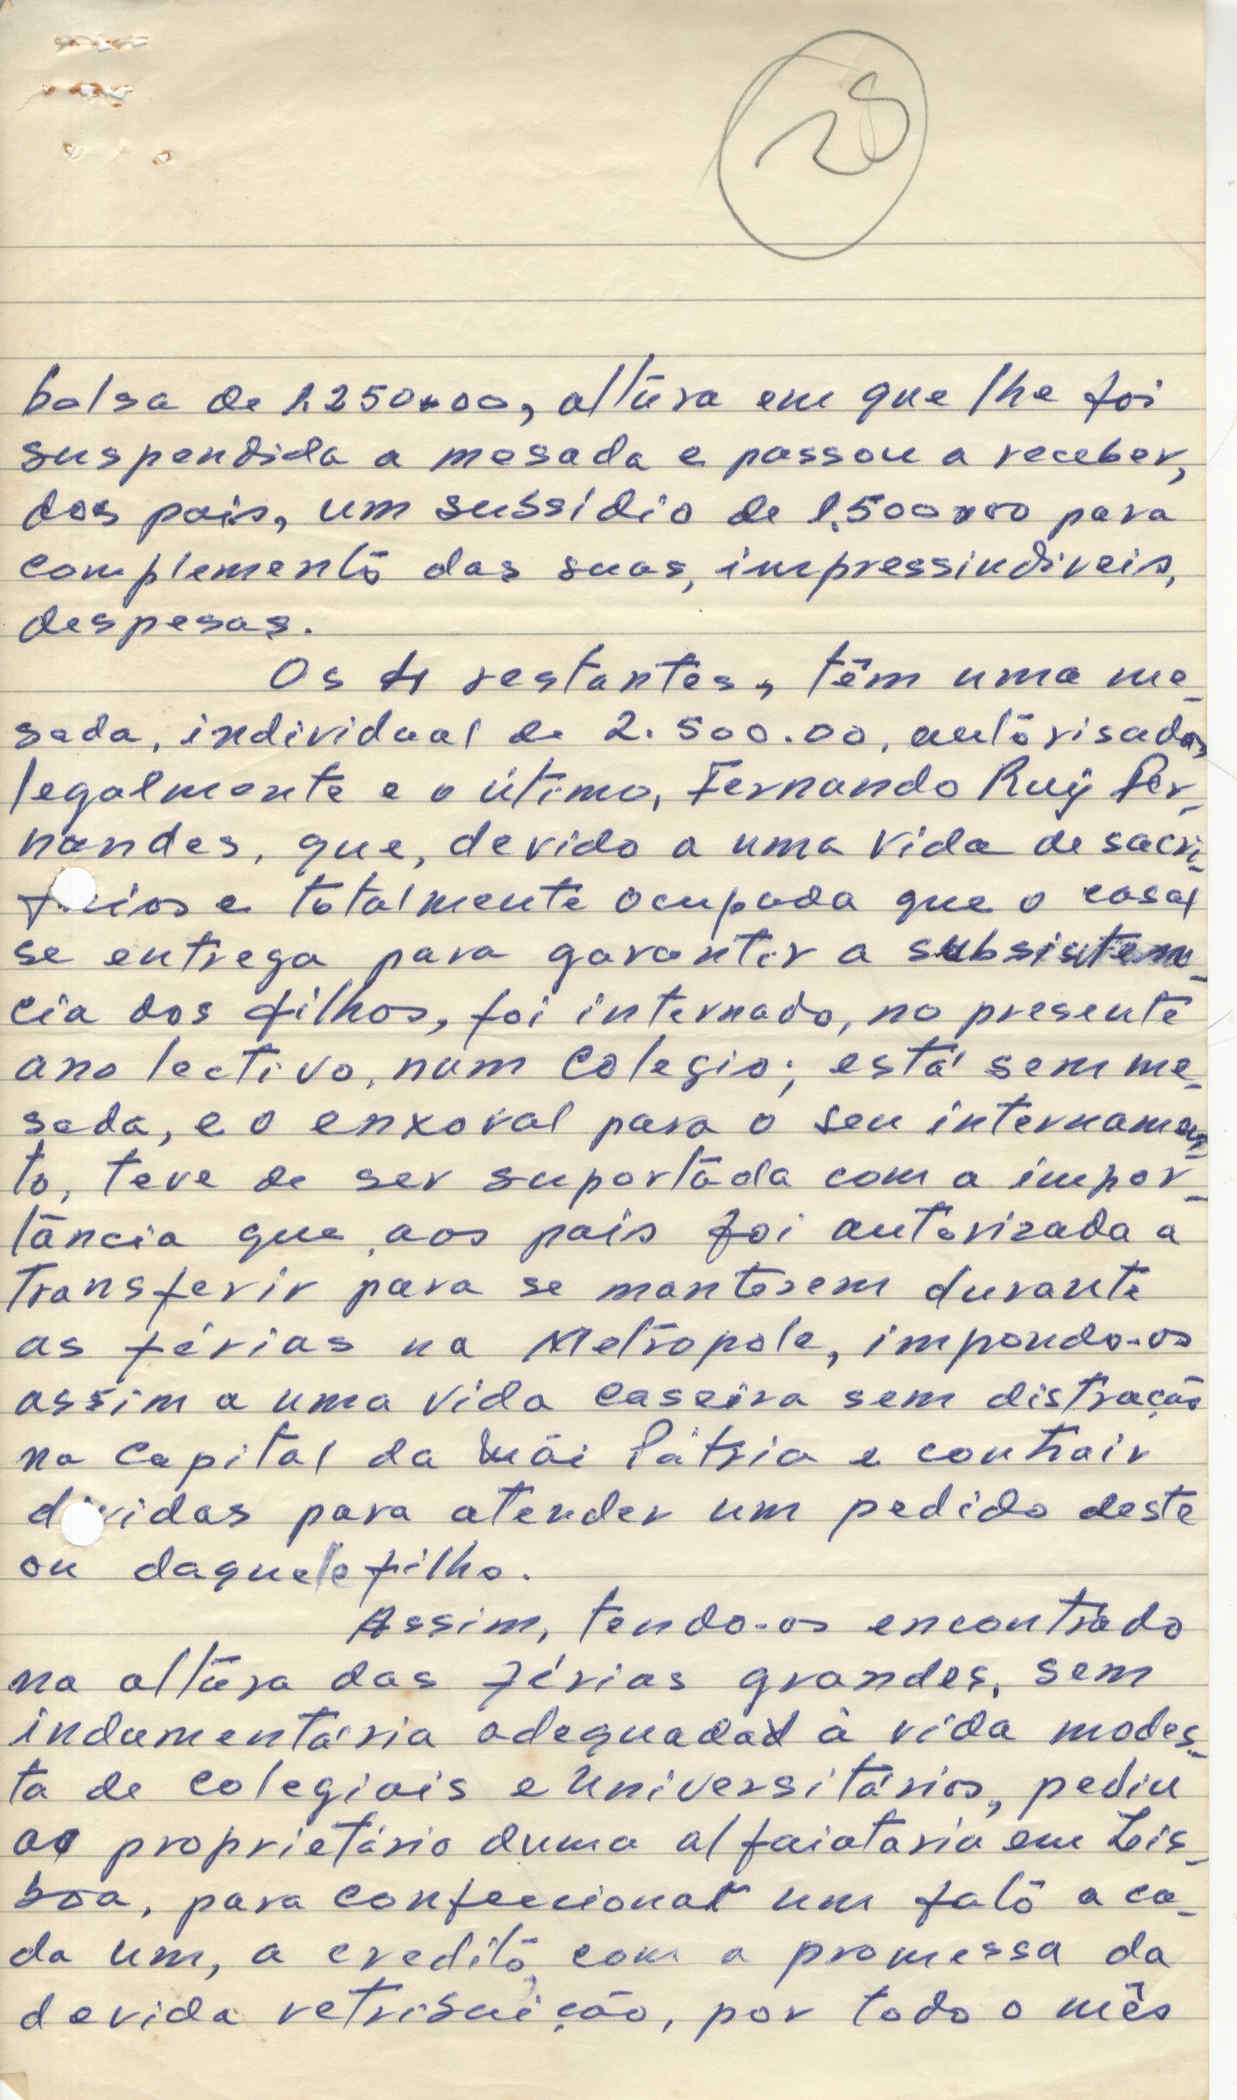 28
bolsa de 1.250x00, altura em que lhe foi
suspendida a mesada e passou a receber,
dos pais, um subsídio de 1.500x00 para
complemento das suas, impressindiveis,
despesas.
Os 4 restantes, têm uma me-
sada, individual de 2.500.00, autorisadas
legalmente e o útimo, Fernando Ruy Fer-
nandes, que, devido a uma vida de sacri-
ficios e totalmente ocupada que o casal
se entrega para garantir a subsistem-
cia dos filhos, foi internado, no presente
ano lectivo, num Colegio; está sem me-
sada, e o enxoval para o seu internamen-
to, teve de ser suportada com a impor-
tância que, aos pais foi autorizada a
transferir para se manterem durante
as férias na Metropole, impondo-os
assim a uma vida caseira sem distração
na Capital da Mãi Pátria e contrair
dividas para atender um pedido deste
ou daquele filho.
Assim, tendo-os encontrado
na altura das férias grandes, sem
indumentária adequada à vida modes-
ta de colegiais e Universitários, pediu
ao proprietário duma alfaiataria em Lis-
boa, para confeccionar um fato a ca-
da um, a credito, com a promessa da
devida retribuição, por todo o mês